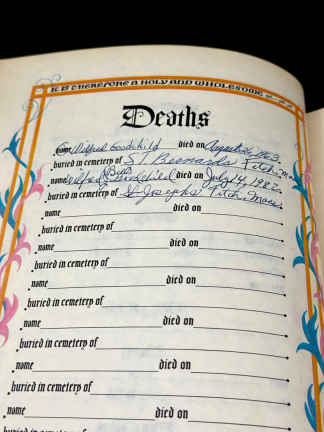 IT IS THEREFORE A HOLY AND WHOLESOME
Deaths
name Wilfred Goodchild died on August 26, 1963
buried in cemetery of ST Bernards Fitch, Mass
name Wilfred (Bud) Goodchild died on July 14, 1982
buried in cemetery of St Josephs Fitch, Mass.
name died on
buried in cemetery of
name died on
buried in cemetery of
name died on
buried in cemetery of
name died on
buried in cemetery of
name died on
buried in cemetery of
name died on
buried in cemetery of